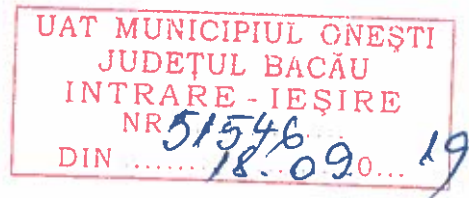 UAT MUNICIPIUL ONEŞTI
JUDEŢUL BACĂU
INTRARE - IEŞIRE
NR 51546
DIN ...... 18.09.0... 19